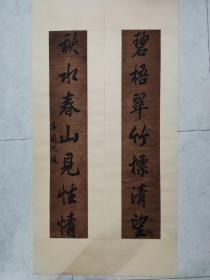 碧梧翠竹標清望
秋水春山見性情